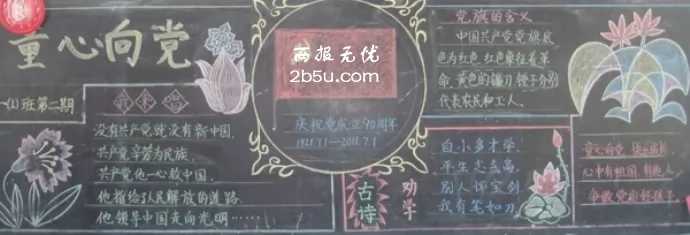 童心向党
一(1)班第二期
我来唱
没有共产党就没有新中国.
共产党辛劳为民族.
共产党他一心救中国.
他指给了人民解放的道路.
他领导中国走向光明……
两报无优
2b5u.com
庆祝党成立90周年
1921.7.1—2011.7.1
党旗的含义
中国共产党党旗底
色为红色.红色象征着革
命.黄色的镰刀.锤子分别
代表农民和工人.
古诗
劝学
自小多才学,
平生志气高.
别人怀宝剑,
我有笔如刀.
童心向党 快乐成长
心中有祖国 有他人
争做党的好孩子